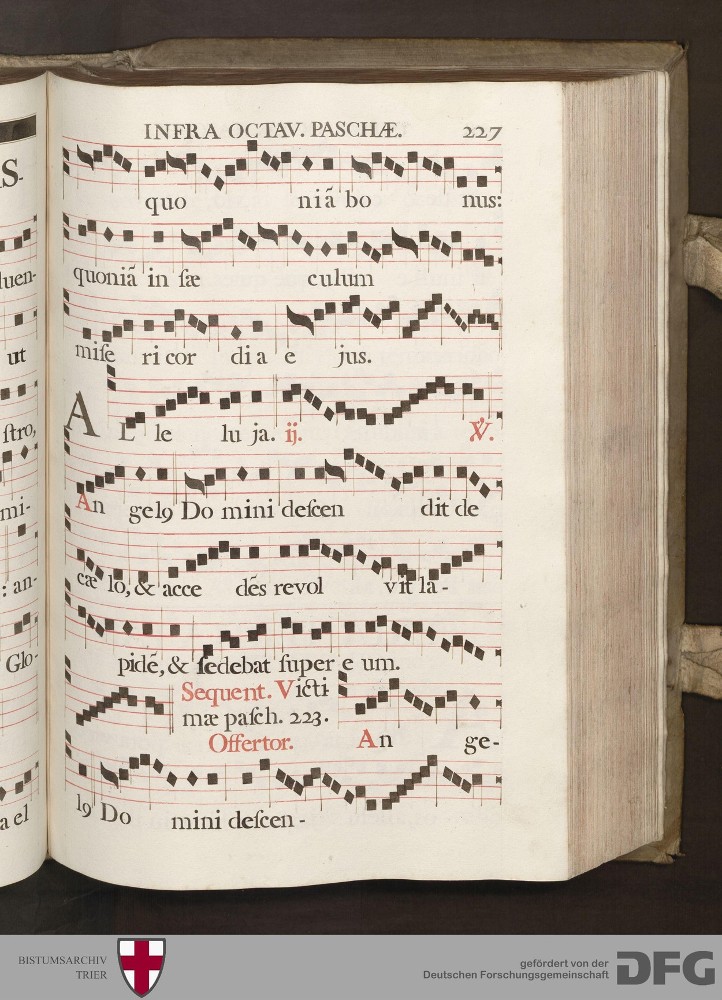 INFRA OCTAV. PASCHÆ. 227
quo niã bo nus:
quoniã in ſæ culum
miſe ri cor di a e jus.
AL le lu ja. ij. ℣.
An gel9 Do mini deſcen dit de
cæ lo, & acce dẽs revol vit la-
pidẽ, & ſedebat ſuper e um.
Sequent. Victi
mæ paſch. 223.
Offertor. An ge-
l9 Do mini deſcen-
S-
luen-
ut
ſtro,
mi-
: an-
Glo-
a el
BISTUMSARCHIV
TRIER
gefördert von der
Deutschen Forschungsgemeinschaft
DFG